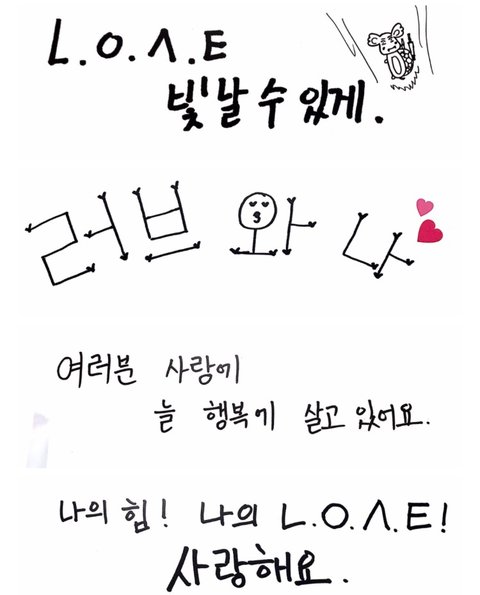 L.O.Λ.E
빛날 수 있게.
러브 와 나
여러분 사랑에
늘 행복하게 살고 있어요.
나의 힘! 나의 L.O.Λ.E!
사랑해요.